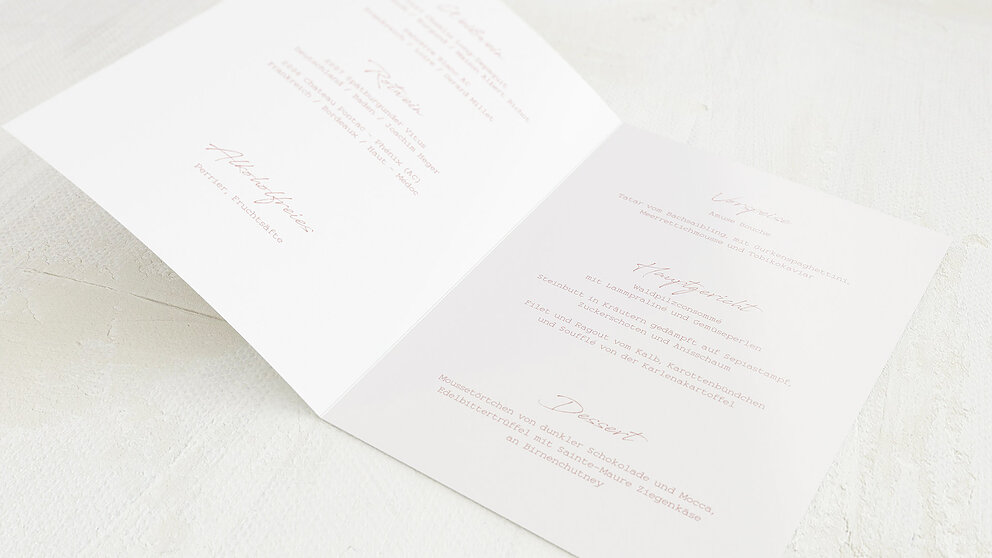 Rotwein
Spätburgunder Vitus
Deutschland / Baden / Joachim Heger
Chateau Pontac - Phénix (AC)
Frankreich / Bordeaux / Haut - Medoc
Alkoholfreies
Perrier, Fruchtsäfte
Vorspeise
Amuse Bouche
Tatar vom Bachsaibling, mit Gurkenspaghettini,
Meerrettichmousse und Tobikokaviar
Hauptgericht
Waldpilzconsommé
mit Lammpraline und Gemüseperlen
Steinbutt in Kräutern gedämpft auf Sepiastampf,
Zuckerschoten und Anisschaum
Filet und Ragout vom Kalb, Karottenbündchen
und Soufflé von der Karlenakartoffel
Dessert
Moussetörtchen von dunkler Schokolade und Mocca,
Edelbittertrüffel mit Sainte-Maure Ziegenkäse
an Birnenchutney